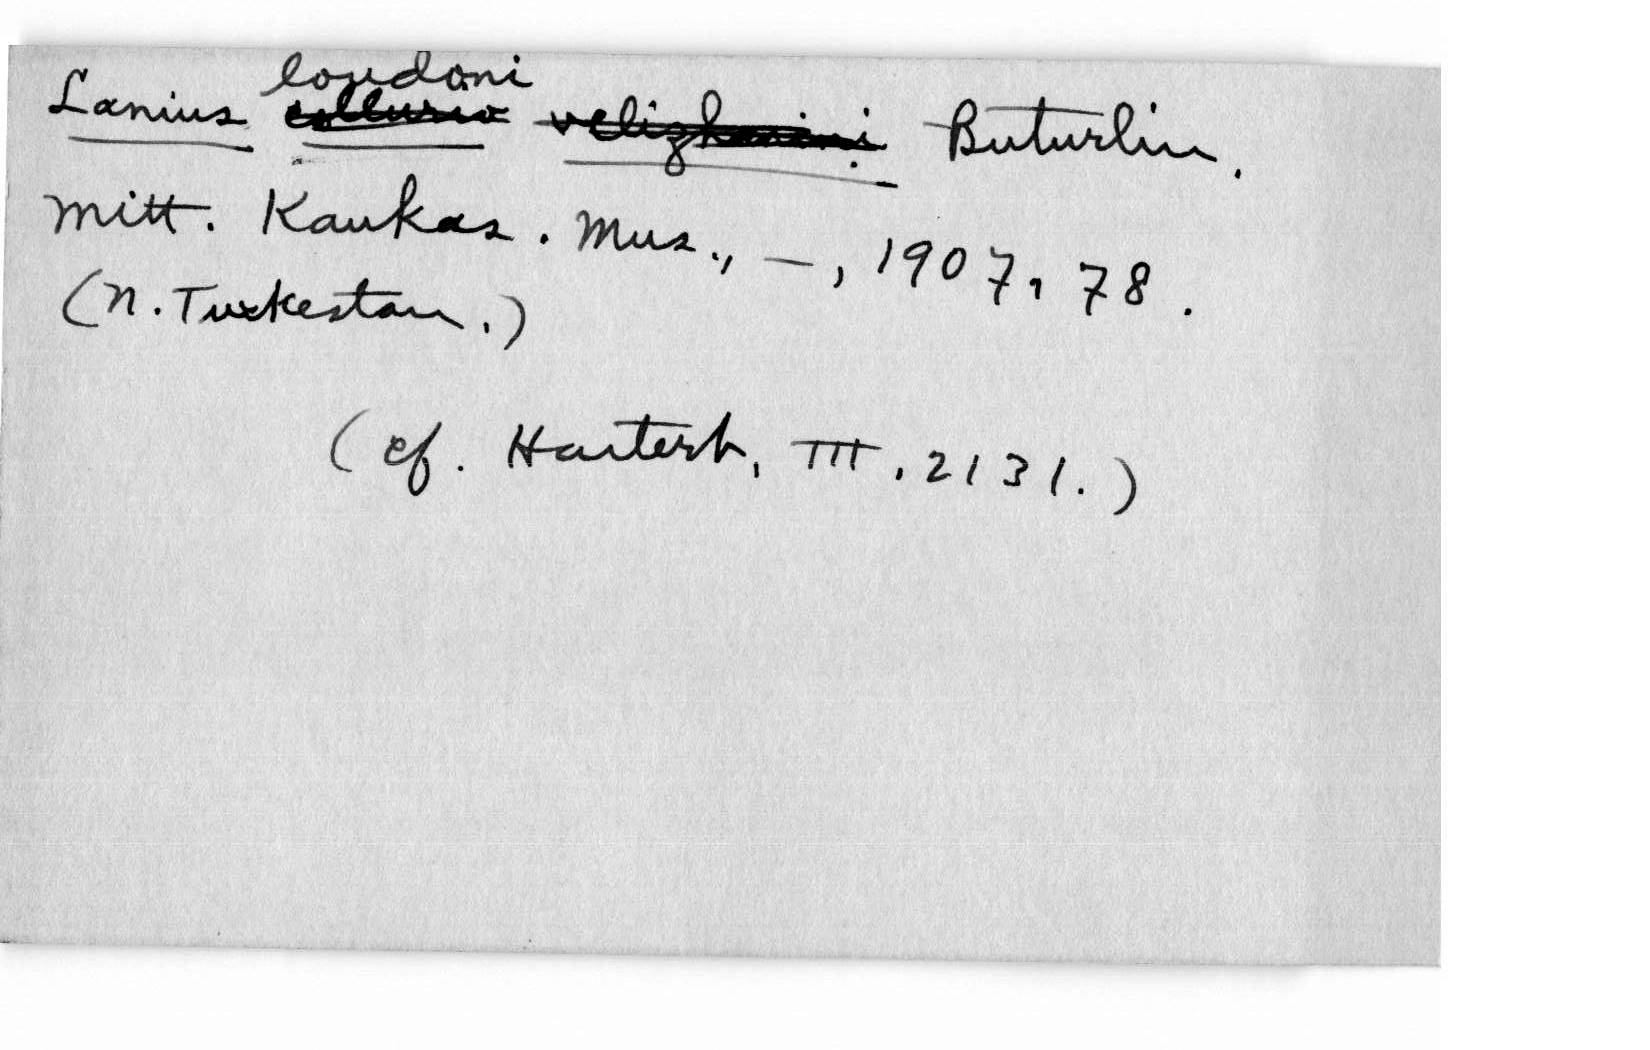 loudoni
Lanius collurio velizhanini Buturlin.
Mitt. Kaukas. Mus., –, 1907, 78.
(N. Turkestan.)
(cf. Hartert, III, 2131.)